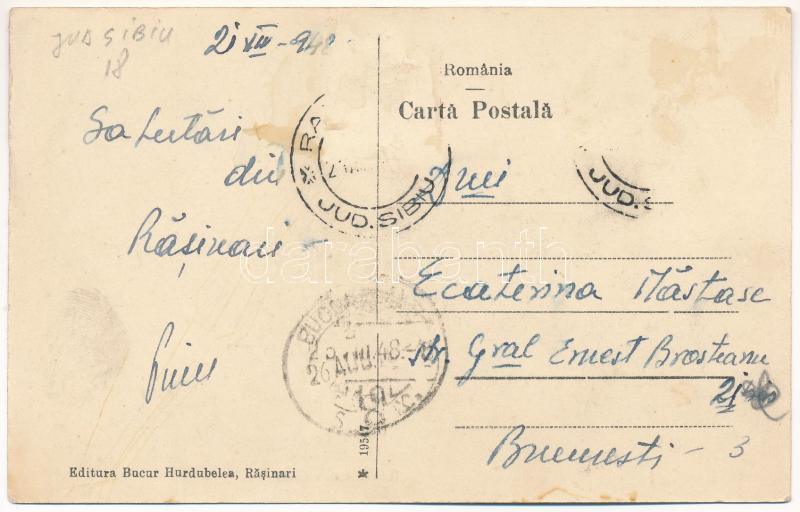 JUD SIBIU
18
21 VIII - 948
Salutări
din
Rășinari -
România
Cartă Postală
* RĂ
JUD. SIBIU
JUD. S
D nei
Ecaterina Năstase
Str. Gral Ernest Broșteanu
21
București - 3
BUCU
26 AUG. 48
darabanth
19567 *
Editura Bucur Hurdubelea, Rășinari